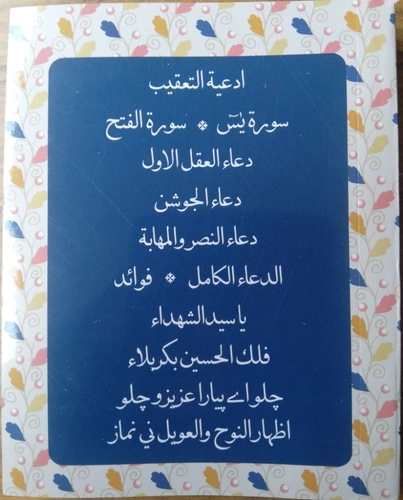 ادعية التعقيب
سورة يٰسٓ ❖ سورة الفتح
دعاء العقل الاول
دعاء الجوشن
دعاء النصر والمهابة
الدعاء الكامل ❖ فوائد
يا سيد الشهداء
فلك الحسين بكربلاء
چلو اے پيارا عزيزو چلو
اظهار النوح والعويل ني نماز